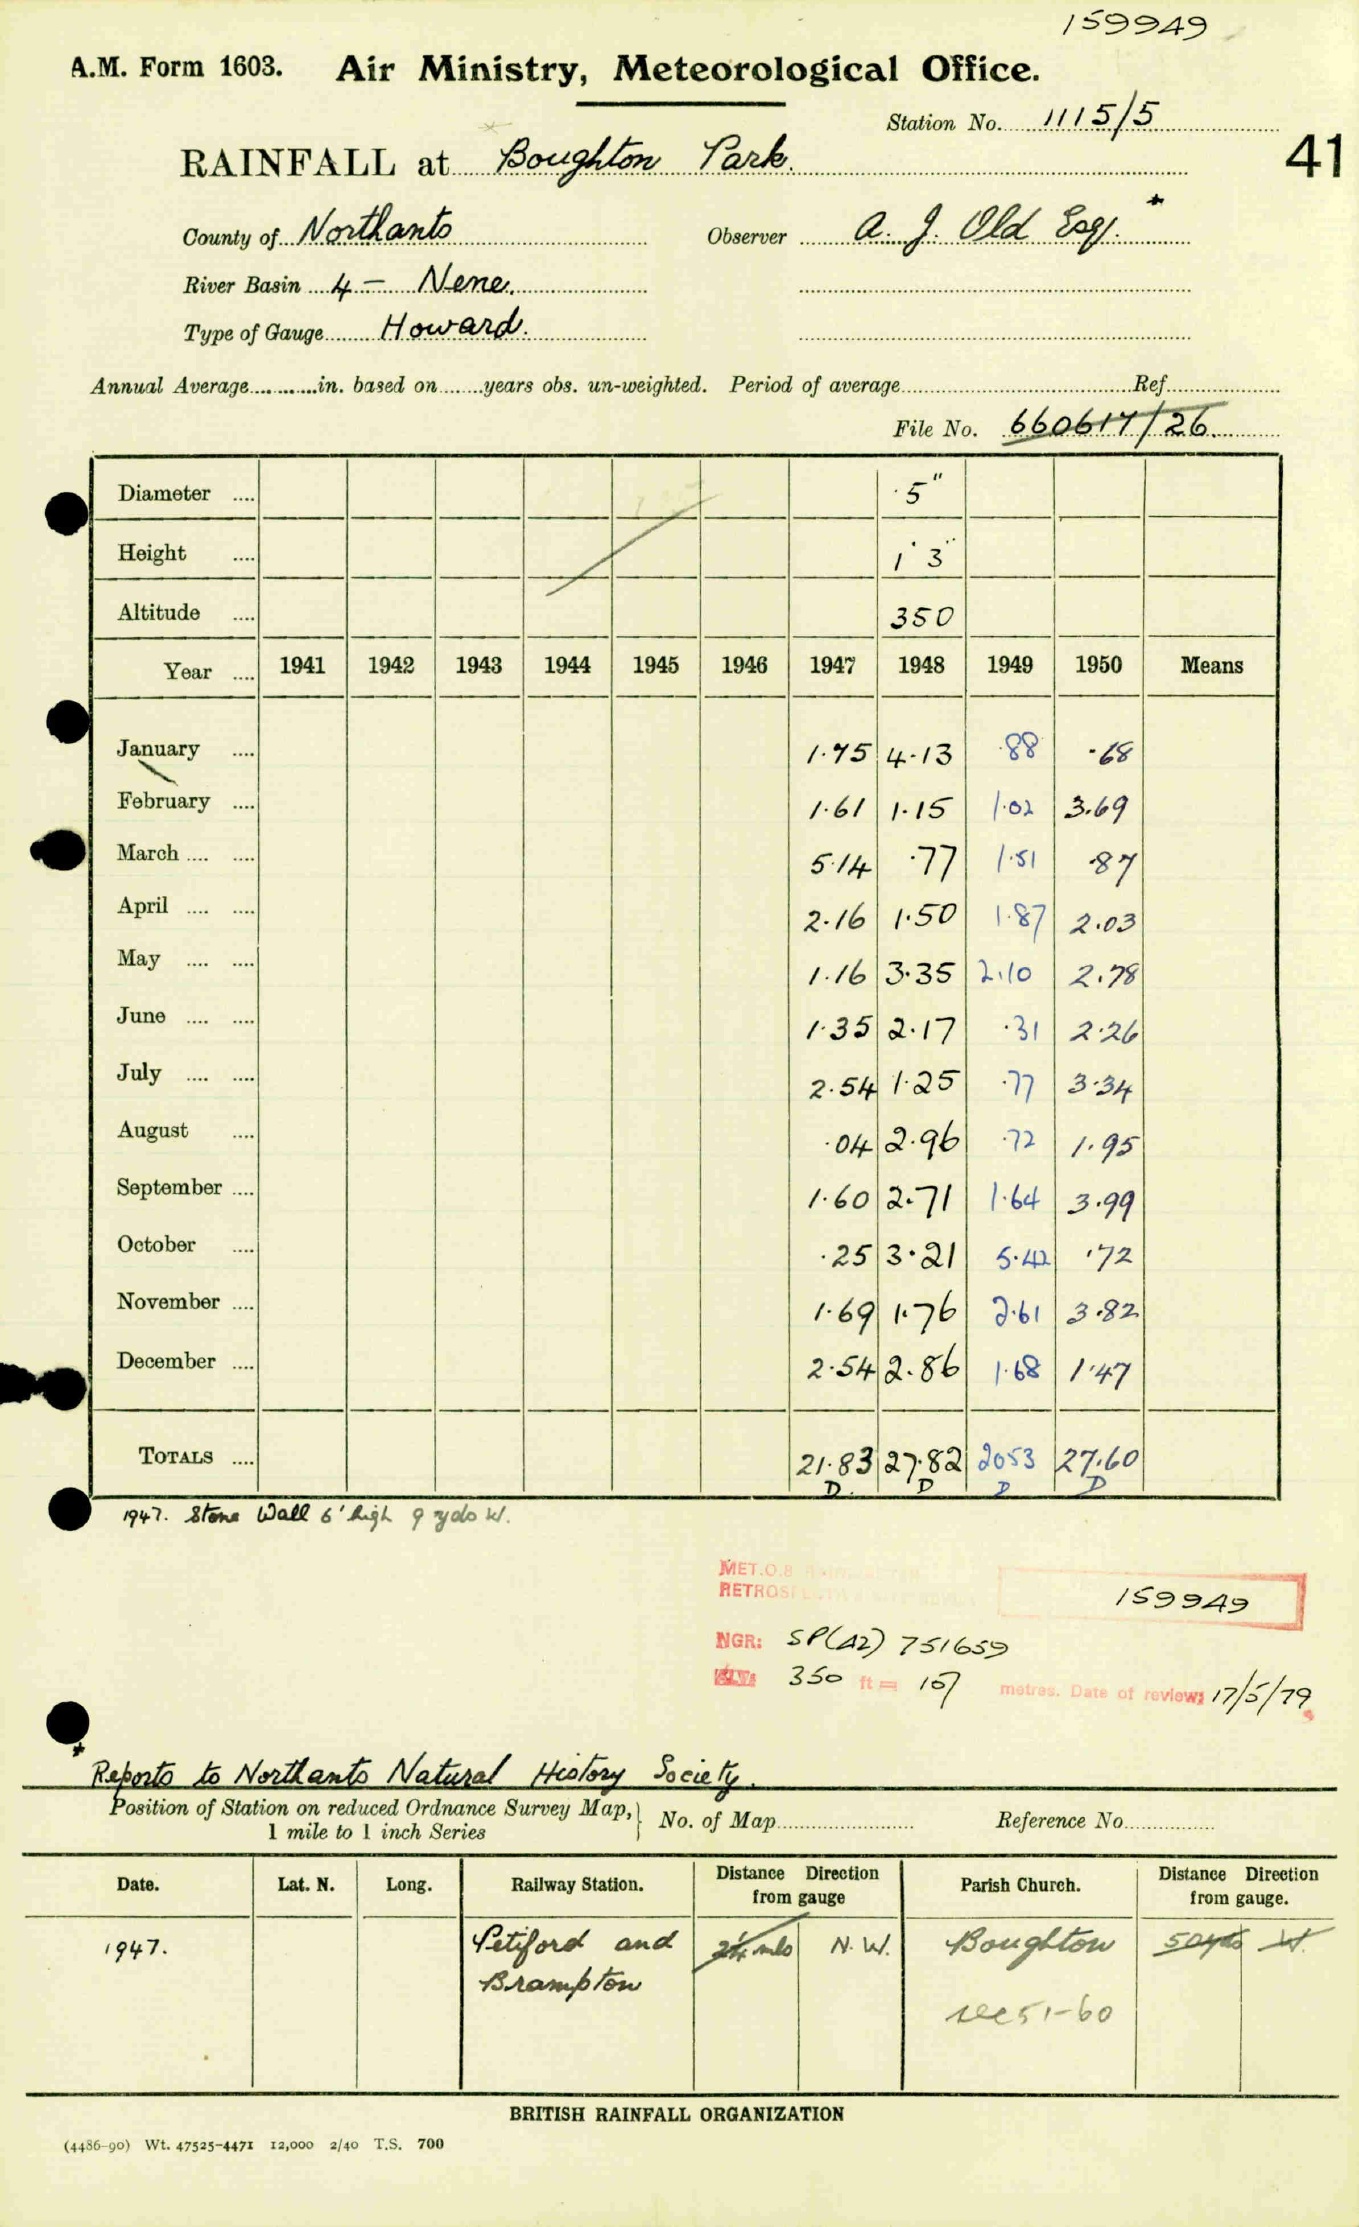 159949
A.M. Form 1603. Air Ministry, Meteorological Office.
Station No. 1115/5
41
RAINFALL at Boughton Park.
County of Northants Observer A. J. Old Esq. *
River Basin 4 - Nene.
Type of Gauge Howard.
Annual Average in. based on years obs. un-weighted. Period of average Ref
File No. 660617/26.
Diameter .... 5"
Height .... 1' 3"
Altitude .... 350
Year .... 1941 1942 1943 1944 1945 1946 1947 1948 1949 1950 Means
January .... 1.75 4.13 .88 .68
February .... 1.61 1.15 1.02 3.69
March .... .... 5.14 .77 1.51 .87
April .... .... 2.16 1.50 1.87 2.03
May .... .... 1.16 3.35 2.10 2.78
June .... .... 1.35 2.17 .31 2.26
July .... .... 2.54 1.25 .77 3.34
August .... .04 2.96 .72 1.95
September .... 1.60 2.71 1.64 3.99
October .... .25 3.21 5.42 .72
November .... 1.69 1.76 2.61 3.82
December .... 2.54 2.86 1.68 1.47
TOTALS .... 21.83 27.82 2053 27.60
D. D D D
1947. Stone Wall 6' high 9 yds W.
MET.O.8
RETROSPECTIVE
159949
NGR: SP(42) 751659
ALT: 350 ft = 107 metres. Date of review: 17/5/79
* Reports to Northants Natural History Society.
Position of Station on reduced Ordnance Survey Map, 1 mile to 1 inch Series } No. of Map Reference No.
Date. Lat. N. Long. Railway Station. Distance Direction from gauge Parish Church. Distance Direction from gauge.
1947. Petiford and Brampton 2¼ mls N.W. Boughton 50 yds W.
see 51-60
BRITISH RAINFALL ORGANIZATION
(4486-90) Wt. 47525-4471 12,000 2/40 T.S. 700